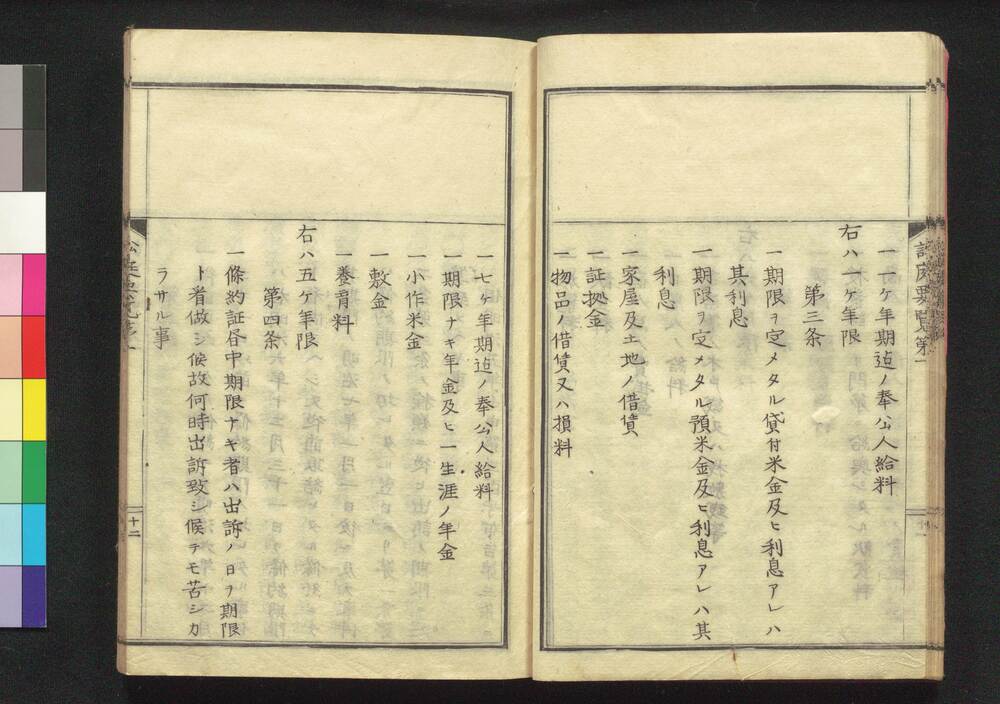 一一ケ年期迠ノ奉公人給料
右ハ一ケ年限
第三条
一期限ヲ定メタル貸付米金及ヒ利息アレハ
其利息
一期限ヲ定メタル預米金及ヒ利息アレハ其
利息
一家屋及土地ノ借賃
一証拠金
一物品ノ借賃又ハ損料
一七ケ年期迠ノ奉公人給料
一期限ナキ年金及ヒ一生涯ノ年金
一小作米金
一敷金
一養育料
右ハ五ケ年限
第四条
一條約証昏中期限ナキ者ハ出訴ノ日ヲ期限
ト看做シ候故何時出訴致シ候テモ苦シカ
ラサル事
十二